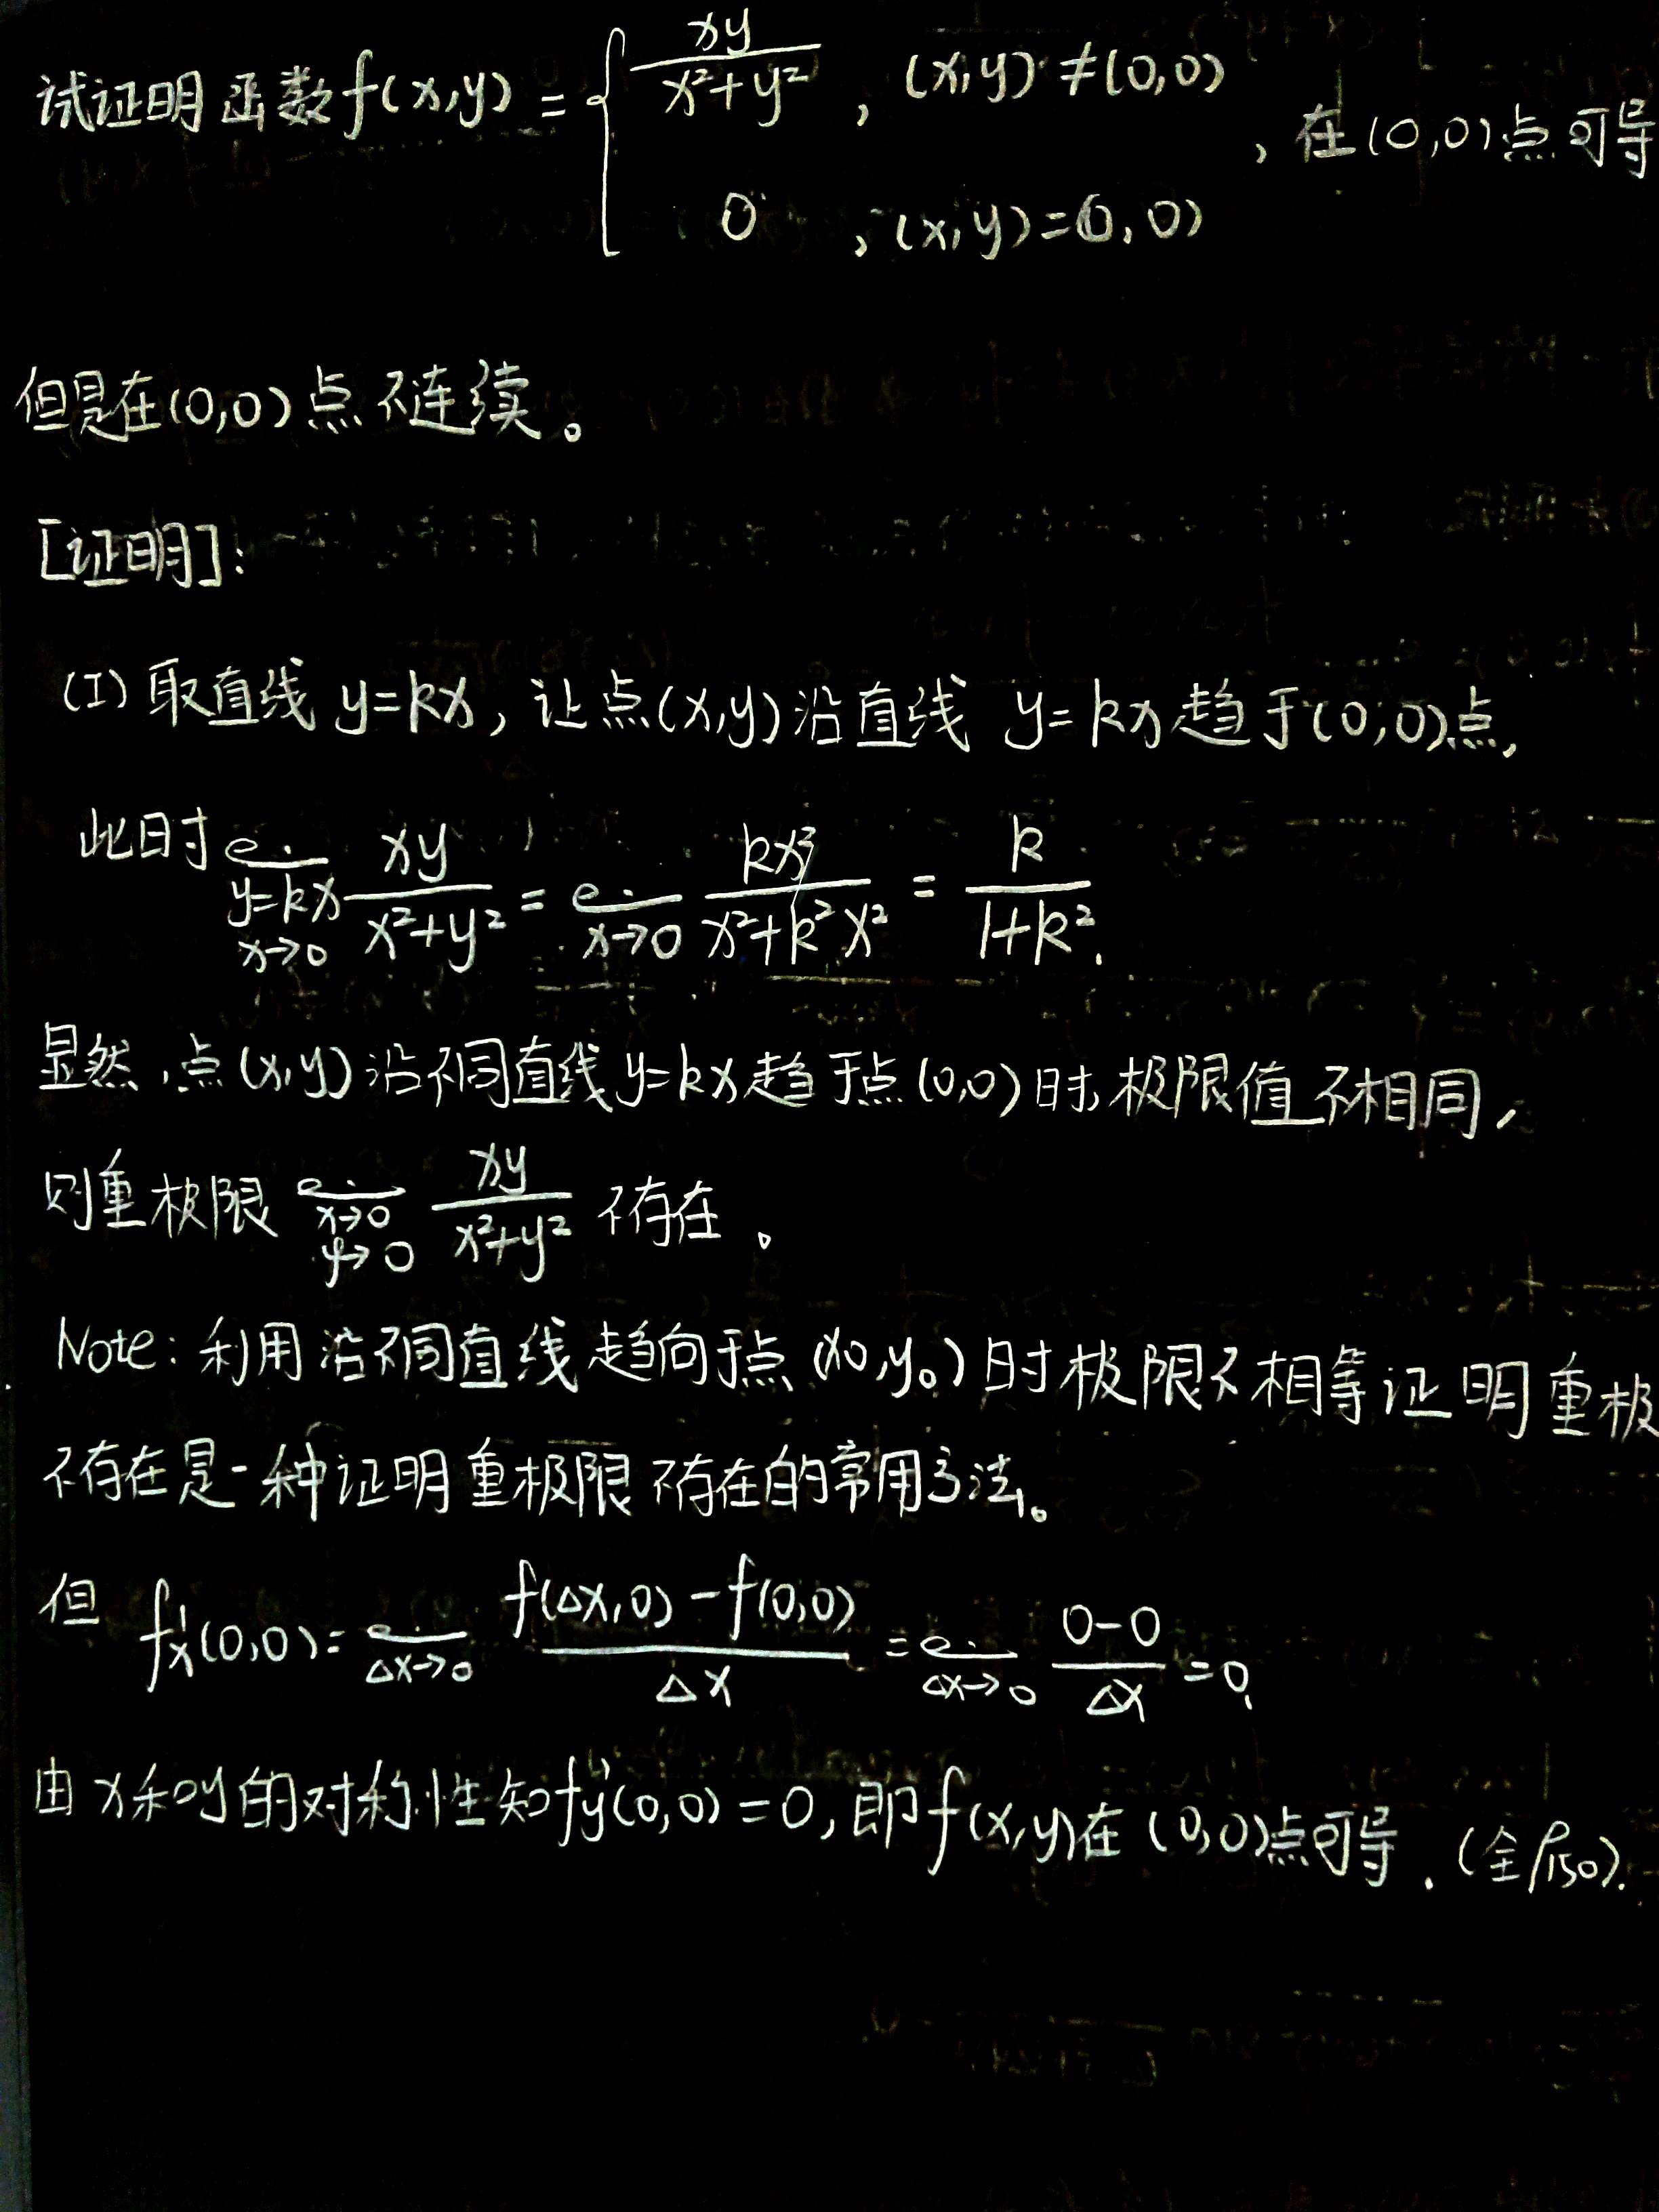 试证明函数f(x,y) = { xy/(x²+y²) , (x,y)≠(0,0)
0 , (x,y)=(0,0)
, 在(0,0)点可导
但是在(0,0)点不连续。
[证明]:
(I) 取直线 y=kx, 让点(x,y)沿直线 y=kx趋于(0,0)点,
此时 y=kx x→0 xy/(x²+y²) = x→0 kx²/(x²+k²x²) = k/(1+k²).
显然,点(x,y)沿不同直线y=kx趋于点(0,0)时,极限值不相同,
则重极限 x→0 y→0 xy/(x²+y²) 不存在。
Note: 利用沿不同直线趋向于点(x0,y₀)时极限不相等证明重极
不存在是一种证明重极限不存在的常用方法。
但 f'x(0,0)= Δx→0 (f(Δx,0)-f(0,0))/Δx = Δx→0 (0-0)/Δx =0,
由x和y的对称性知f'y(0,0)=0,即f(x,y)在(0,0)点可导.(全P150).